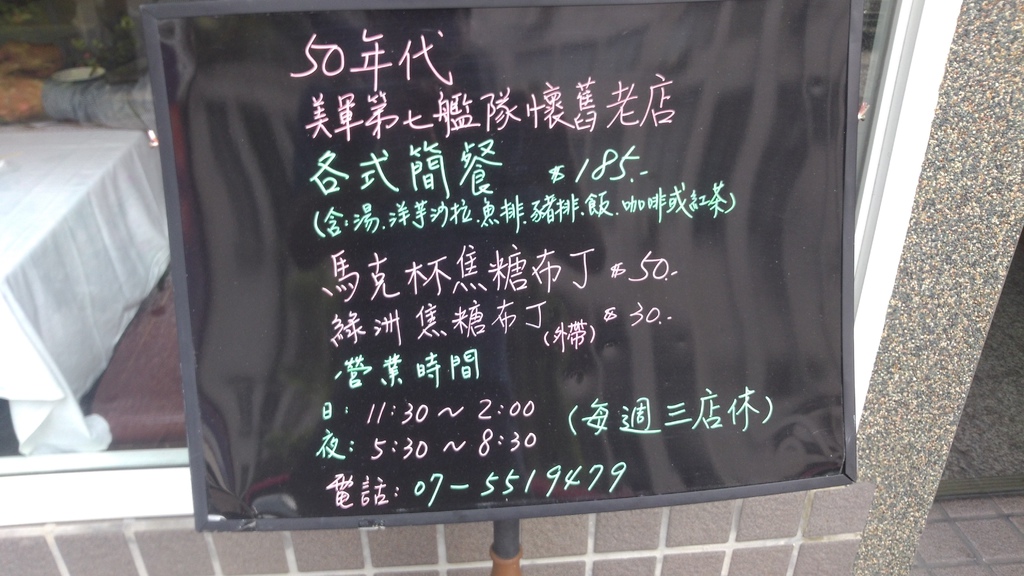 50年代
美軍第七艦隊懷舊老店
各式簡餐 $185.-
(含:湯.洋芋沙拉.魚排.豬排.飯.咖啡或紅茶)
馬克杯焦糖布丁 $50.-
綠洲焦糖布丁(外帶) $30.-
營業時間
日: 11:30~2:00 (每週三店休)
夜: 5:30~8:30
電話: 07-5519479